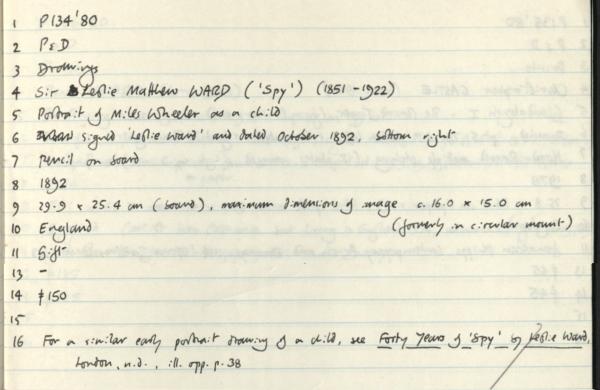 1 P134'80
2 P&D
3 Drawings
4 Sir Leslie Matthew WARD ('Spy') (1851-1922)
5 Portrait of Miles Wheeler as a child
6 signed 'Leslie Ward' and dated October 1892, bottom right
7 Pencil on board
8 1892
9 29.9 x 25.4 cm (board), maximum dimensions of image c. 16.0 x 15.0 cm
10 England (formerly in circular mount)
11 Gift
13 -
14 £150
15
16 For a similar early portrait drawing of a child, see Forty Years of 'Spy' by Leslie Ward,
London, n.d., ill. opp. p. 38